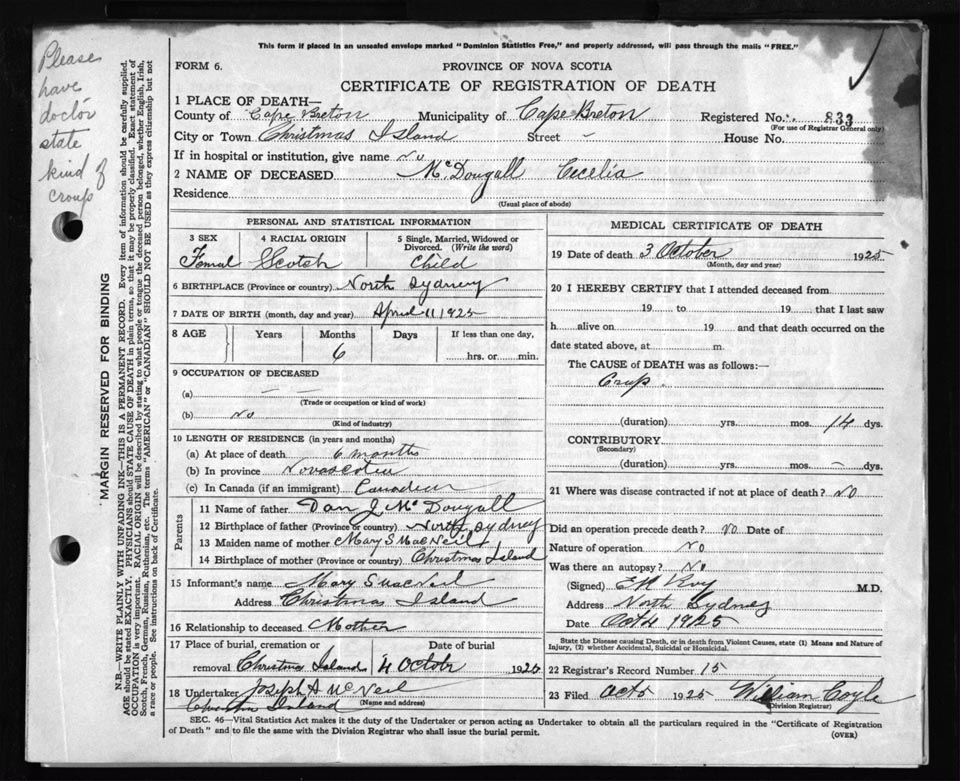 This form if placed in an unsealed envelope marked "Dominion Statistics Free," and properly addressed, will pass through the mails "FREE."
FORM 6.
PROVINCE OF NOVA SCOTIA
CERTIFICATE OF REGISTRATION OF DEATH
Please have doctor state kind of croup
MARGIN RESERVED FOR BINDING
N.B.—WRITE PLAINLY WITH UNFADING INK—THIS IS A PERMANENT RECORD. Every item of information should be carefully supplied.
AGE should be stated EXACTLY. PHYSICIANS should STATE CAUSE OF DEATH in plain terms, so that it may be properly classified. Exact statement of
OCCUPATION is very important. RACIAL ORIGIN will be described by stating to what people or tongue the deceased person belonged, whether English, Irish,
Scotch, French, German, Russian, Ruthenian, etc. The terms "AMERICAN" or "CANADIAN" SHOULD NOT BE USED as they express citizenship but not
a race or people. See instructions on back of Certificate.
1 PLACE OF DEATH—
County of Cape Breton Municipality of Cape Breton Registered No. 833
(For use of Registrar General only)
City or Town Christmas Island Street - House No.
If in hospital or institution, give name No
2 NAME OF DECEASED McDougall Cecelia
Residence
(Usual place of abode)
PERSONAL AND STATISTICAL INFORMATION
3 SEX Femal
4 RACIAL ORIGIN Scotch
5 Single, Married, Widowed or Divorced. (Write the word) Child
6 BIRTHPLACE (Province or country) North Sydney
7 DATE OF BIRTH (month, day and year) April 11 1925
8 AGE Years Months Days If less than one day,
6 hrs. or min.
9 OCCUPATION OF DECEASED
(a) — —
(Trade or occupation or kind of work)
(b) No
(Kind of industry)
10 LENGTH OF RESIDENCE (in years and months)
(a) At place of death 6 months
(b) In province Novascotia
(c) In Canada (if an immigrant) Canadian
Parents
11 Name of father Dan J. McDougall
12 Birthplace of father (Province or country) North Sydney
13 Maiden name of mother Mary S MacNeil
14 Birthplace of mother (Province or country) Christmas Island
15 Informant's name Mary S MacNeil
Address Christmas Island
16 Relationship to deceased Mother
17 Place of burial, cremation or removal Christmas Island
Date of burial 4 Octobr 1925
18 Undertaker Joseph A McNeil
(Name and address)
Island
MEDICAL CERTIFICATE OF DEATH
19 Date of death 3 October 1925
(Month, day and year)
20 I HEREBY CERTIFY that I attended deceased from
19 to 19 that I last saw
h alive on 19 and that death occurred on the
date stated above, at m.
The CAUSE of DEATH was as follows:—
Crup.
(duration) yrs. mos. 14 dys.
CONTRIBUTORY
(Secondary)
(duration) yrs. mos. - dys.
21 Where was disease contracted if not at place of death? No
Did an operation precede death? No Date of
Nature of operation No
Was there an autopsy? No
(Signed) M.D.
Address North Sydney
Date Oct 4 1925
State the Disease causing Death, or in death from Violent Causes, state (1) Means and Nature of
Injury, (2) whether Accidental, Suicidal or Homicidal.
22 Registrar's Record Number 15
23 Filed Oct 5 1925 William Coyle
(Division Registrar)
SEC. 46—Vital Statistics Act makes it the duty of the Undertaker or person acting as Undertaker to obtain all the particulars required in the "Certificate of Registration
of Death" and to file the same with the Division Registrar who shall issue the burial permit.
(OVER)